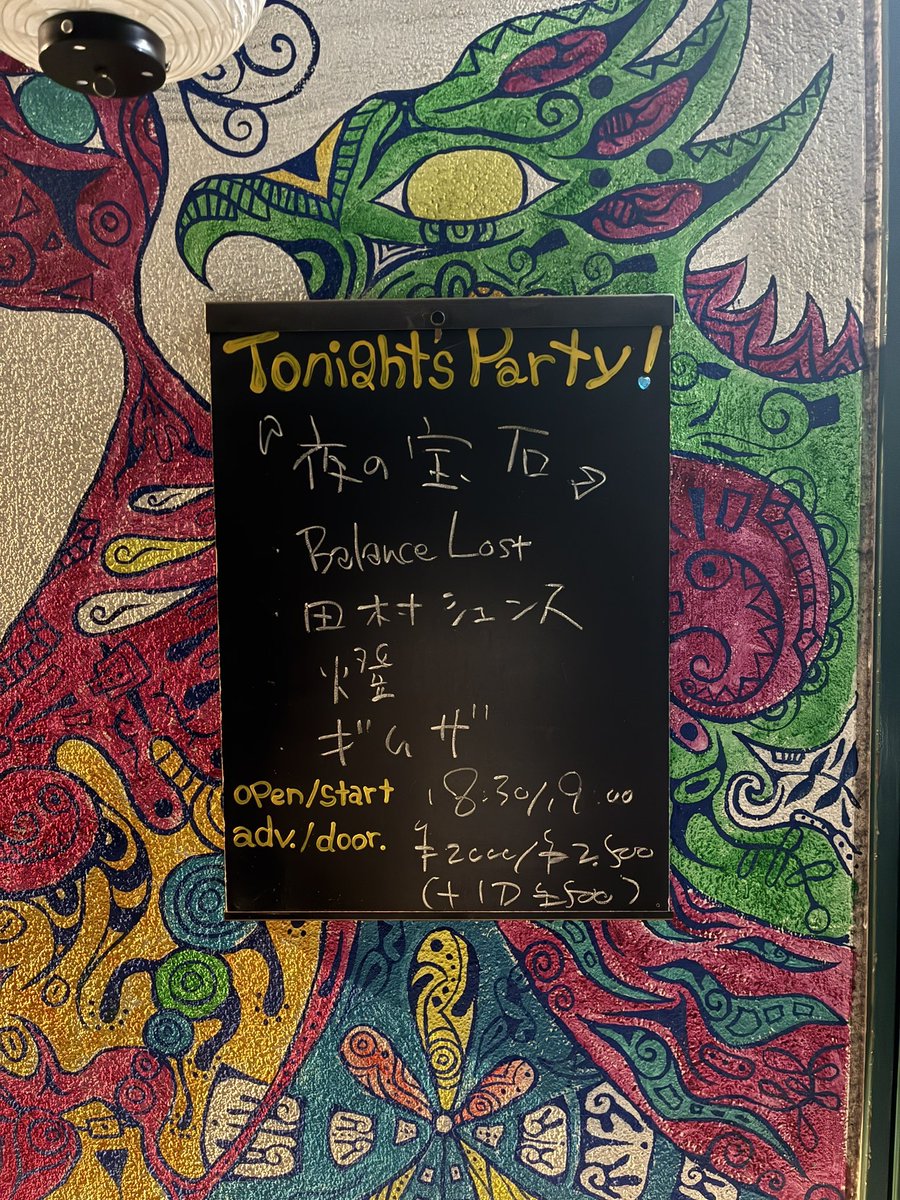 Tonight's Party!
『夜の宝石』
・Balance Lost
・田村ジュンス
・燈
・ギムザ
open/start 18:30/19:00
adv./door. ¥2000/¥2,500
(+1D ¥500)